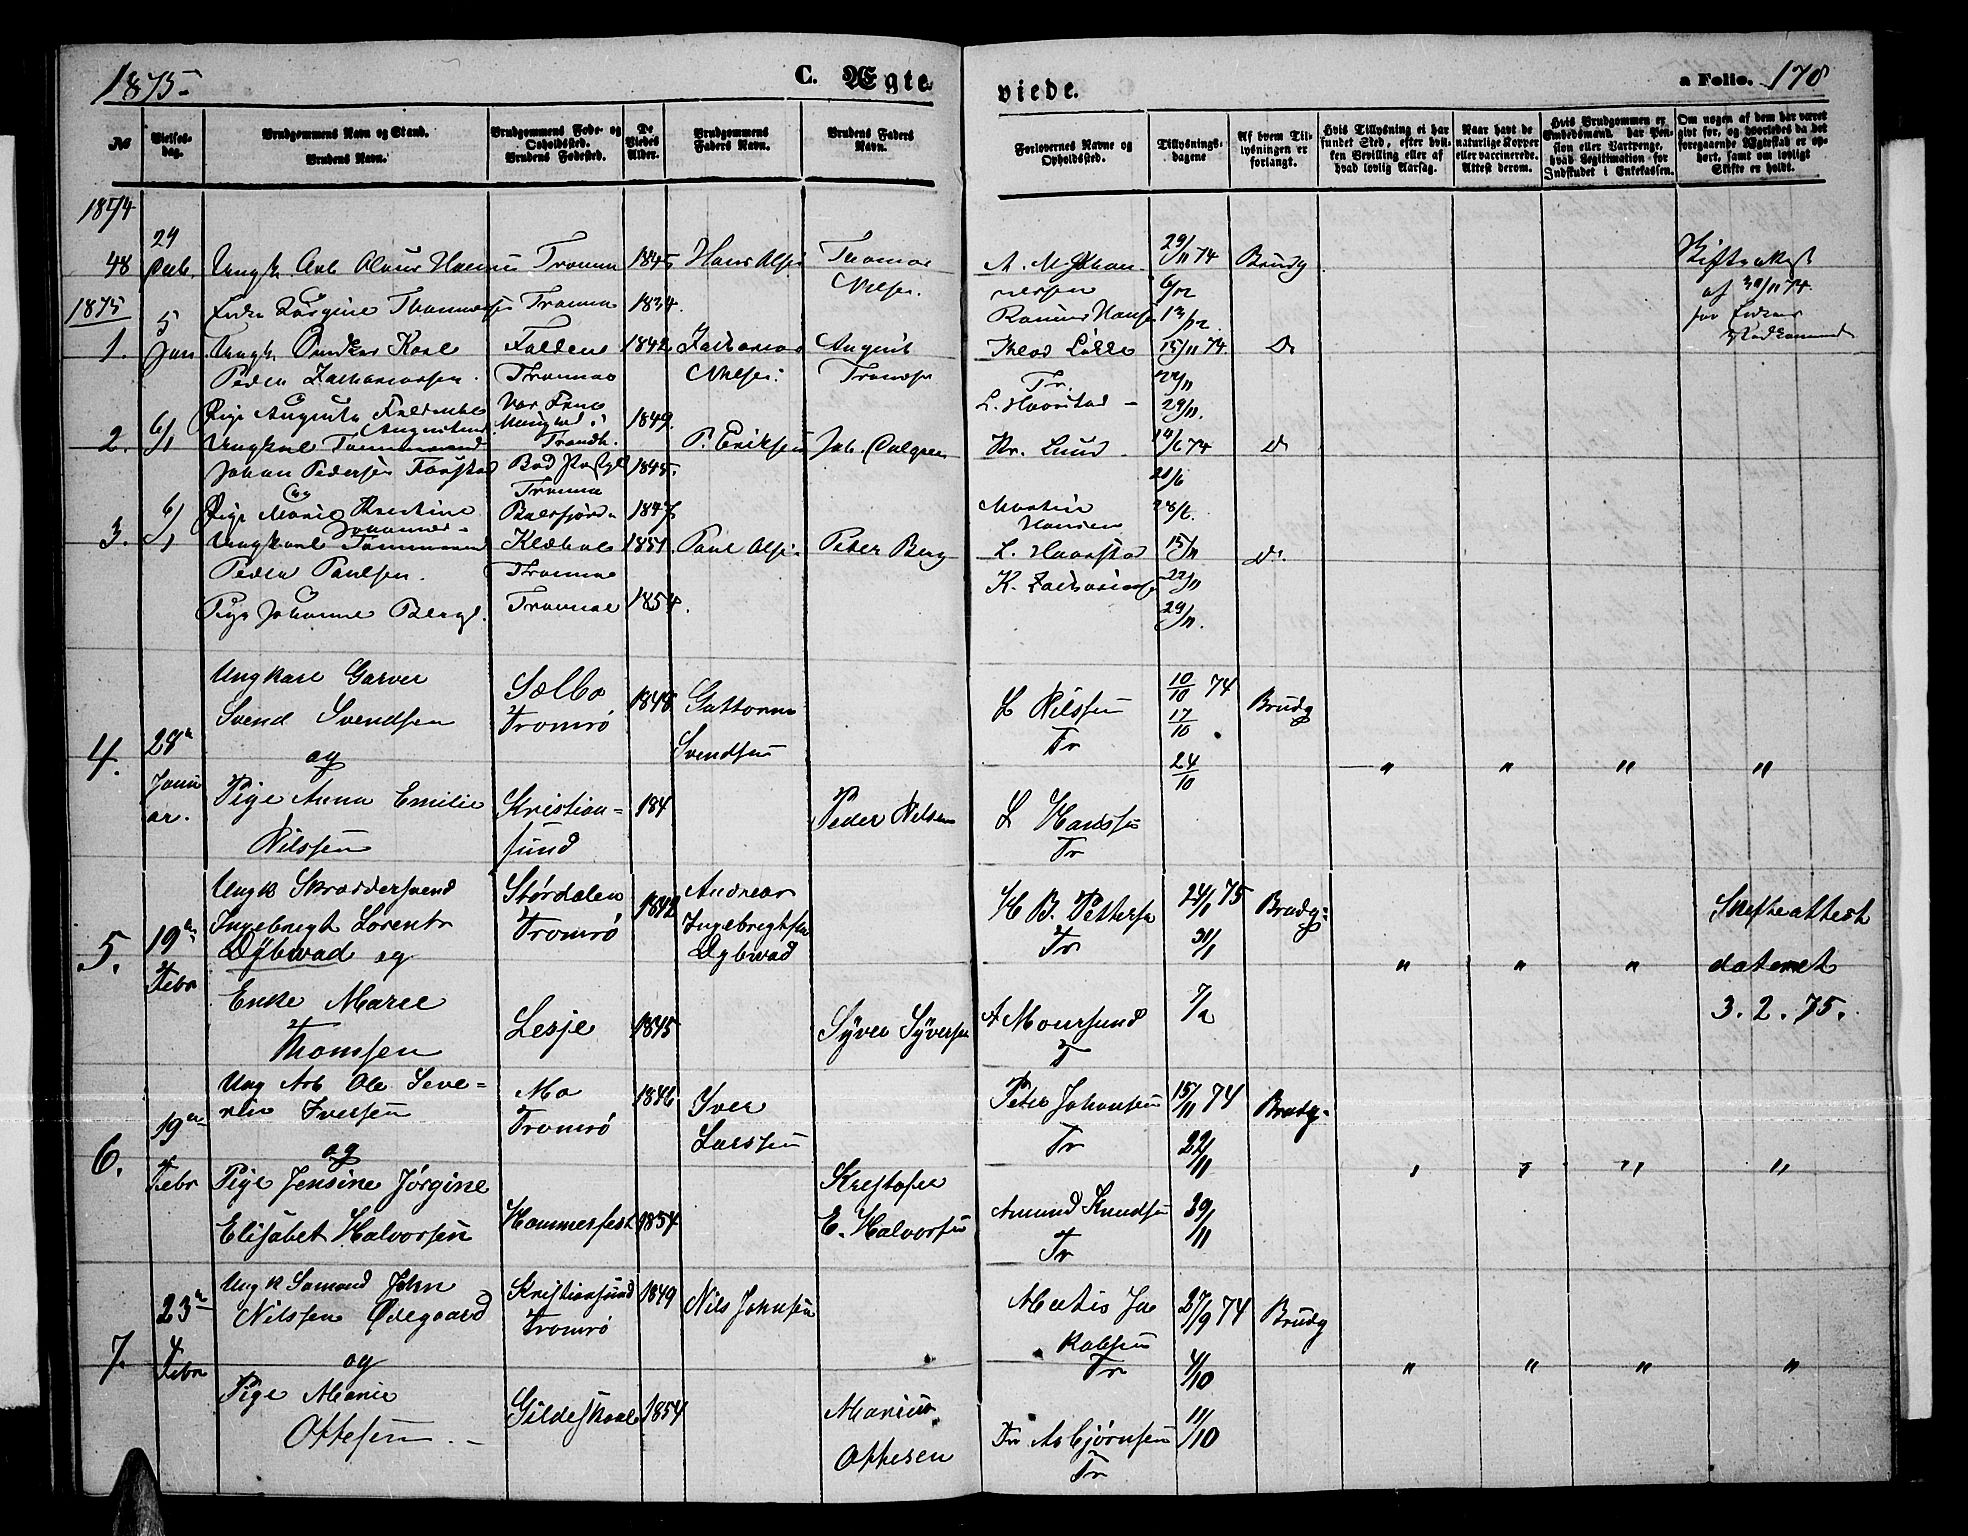 1875
C. Ægteviede.
a Folio. 178
No
Vielses-dag.
Brudgommens Navn og Stand.
Brudens Navn.
Brudgommens Føde- og Opholdssted.
Brudens Fødested.
De Viedes Alder.
Brudgommens Faders Navn.
Brudens Faders Navn.
Forlovernes Navne og Opholdssted.
Tillysnings-dagene
Af hvem Tillysningen er forlangt.
Hvis Tillysning ei har fundet Sted, efter hvilken Bevilling eller af hvad lovlig Aarsag.
Naar havt de naturlige Kopper eller vaccinerede. Attest derom.
Hvis Brudgommen er Embedsmand, har Pension eller Vartpenge, hvad Legitimation for Indskudet i Enkekassen.
Om nogen af dem har været givt før, og hvorledes da det foregaaende Ægteskab er ophørt, samt om lovligt Skifte er holdt.
1874
48 24 Decb. Ungk. Arb Tromsø 1845 Hans Olsen Thomas Nilsen
29/11 74 6/12 13/12 Brudg
Enke Tromsø 1834
Rasmus Hansen
af 30/11 74
1875
1. 5 Jan. Ungk. Karl
Peder Zachariassen
Tromsø 1842 Zacharias Nilsen August
L. Haavstad 15/11 74 22/11 29/11 Do
Pige Augusta
1849
2. 6/1 Ungkarl Tømmermand
Johan Pedersen
Tromsø 1845 P. Eriksen Joh.
Kr. Lund 14/6 74 21/6 28/6 Do
Pige Marie Kristine
Balsfjord 1847
Martin Hansen
3. 6/1 Ungkarl Tømmermand
Peder Paulsen
Tromsø 1851 Paul Olsen Peder Berg
L. Haavstad 15/11 22/11 29/11 Do
K. Zachariassen
Pige Johanne Berg
Tromsø 1854
4. 28de Januar.
Ungkarl Garver
Svend Svendsen
og
Pige Anna Emilie
Nilssen
Sælbo
Tromsø 1848
Guttorm
Svendsen
Kristiansund 184
Peder Nilsen
L Nilssen
Tr
L Hanssen
Tr
10/10 74
17/10
24/10
Brudg
" " " "
5. 19de Febr
Ungk Skræddersvend
Ingebrigt Lorents
Dybwad og
Enke Marie
Thomsen
Størdalen
Tromsø 1842
Andreas
Ingebrigtsen
Dybwad
Lesje 1845
Syver Syversen
H B. Pettersen
Tr
A Moursund
T
24/1 75
31/1
7/2
Brudg.
" " "
Skifteattest
dateret
3. 2. 75.
6. 19de Febr
Ung Arb Ole Severin Iversen
og
Pige Jensine Jørgine
Elisabet Halvorsen
Mo
Tromsø 1846
Iver
Larssen
Hammerfest 1854
Kristofer
E. Halvorsen
Peter Johansen
Tr
Amund Knudsen
Tr
15/11 74
22/11
29/11
Brudg.
" " " "
7. 23de Febr
Ungk Sømand John
Nilssen Ødegaard
og
Pige Marie
Ottesen
Kristiansund
Tromsø 1849
Nils Johnsen
Gildeskaal 1854
Marius
Ottesen
Matis Jakobsen
Tr
Fr Asbjørnsen
Tr
27/9 74
4/10
11/10
Brudg
" " " "